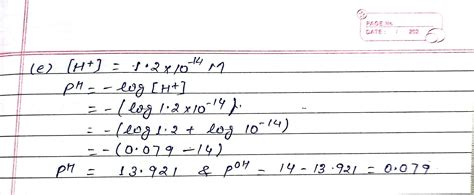 PAGE No.
DATE: / /202
(e) [H+] = 1.2×10⁻¹⁴ M
pᴴ = -log [H+]
= -(log 1.2×10⁻¹⁴).
= -(log 1.2 + log 10⁻¹⁴)
= -(0.079 -14)
pᴴ = 13.921 & pᴼᴴ = 14-13.921 = 0.079